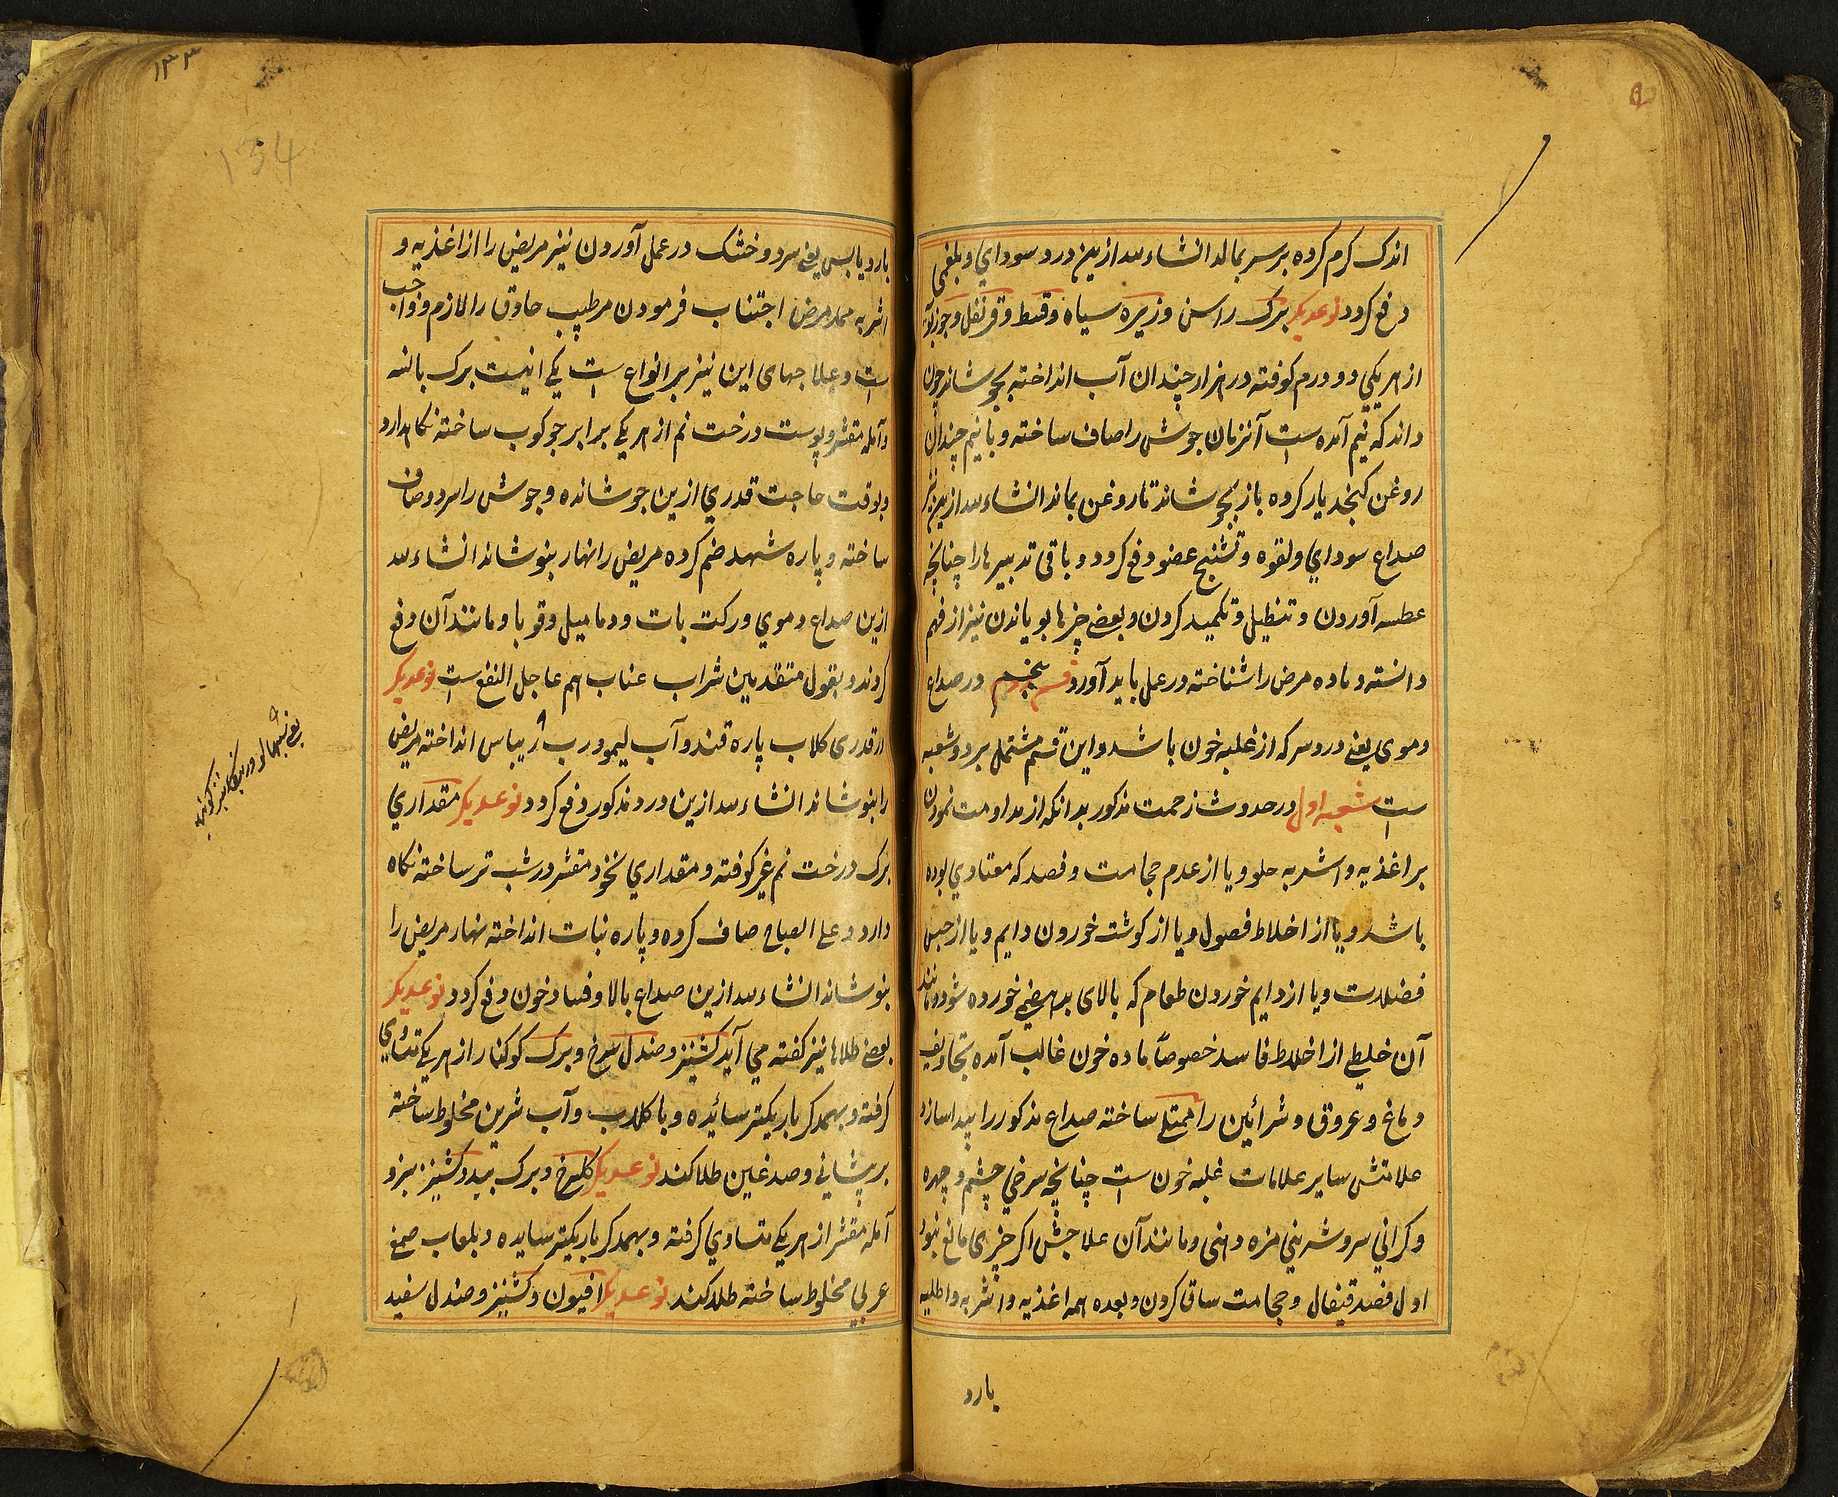 اندک کرم کرده بر سر بمالد انشاءالله ازین درد سودای و بلغمی
دفع کردد نوعدیکر برک راسن و زیره سیاه و قسط و قرنفل و جوزبوا
از هریکی دو درم کوفته در هزار چندان آب انداخته بجوشاند چون
داند که نیم آمده است آنزمان جوش را صاف ساخته و با نیم چندان
روغن کنجد یار کرده باز بجوشاند تا روغن بماند انشاءالله ازین
صداع سودای و لقوه و تشنج عضو دفع کردد و باقی تدبیرها را چنانچه
عطسه آوردن و تنطیل و تکمید کردن و بعضی چیزها بویاندن نیز از فهم
دانسته و ماده مرض را شناخته در عمل باید آورد قسم پنجم در صداع
دموی یعنی درد سر که از غلبه خون باشد و این قسم مشتمل بر دو شعبه
است شعبه اول در حدوث زحمت مذکور بدانکه از مداومت نمودن
بر اغذیه و اشربه حلو و یا از عدم حجامت و فصد که معتادی بوده
باشد و یا از اخلاط فصول و یا از کوشت خوردن دایم و یا از حبس
فضلات و یا از دایم خوردن طعام که بالای بدهضمی خورده شود و مانند
آن خلیطی از اخلاط فاسد خصوصاً ماده خون غالب آمده تجاویف
دماغ و عروق و شرائین را ممتلی ساخته صداع مذکور را پیدا سازد
علامتش سایر علامات غلبه خون است چنانچه سرخی چشم و چهره
و کرانی سر و شیرینی مزه دهنی و مانند آن علاجش اکر چیزی مانع نبود
اول فصد قیفال و حجامت ساق کردن و بعده همه اغذیه و اشربه و اطلیه
بارد
۱۳۳
134
بارد یابس یعنی سرد و خشک در عمل آوردن نیز مریض را از اغذیه و
اشربه ممد مرض اجتناب فرمودن مر طبیب حاذق را لازم و واجب
است و علاجهای این نیز بر انواع است یکی اینست برک بانسه
و آمله مقشر و پوست درخت نم از هریکی برابر جوکوب ساخته نکاهدارد
و بوقت حاجت قدری ازین جوشانده و جوش را سرد و صاف
ساخته و پاره شهد ضم کرده مریض را نهار بنوشاند انشاءالله
ازین صداع دموی و رکت بات و دمامیل و قوبا و مانند آن دفع
کردند و بقول متقدمین شراب عناب هم عاجل النفع است نوعدیکر
در قدری کلاب پاره قند و آب لیمو و رب ریباس انداخته مریض
را بنوشاند انشاءالله ازین درد مذکور دفع کردد نوعدیکر مقداری
برک درخت نم غیر کوفته و مقداری نخود مقشر در شب تر ساخته نکاه
دارد و علی الصباح صاف کرده و پاره نبات انداخته نهار مریض را
بنوشاند انشاءالله ازین صداع بالا و فساد خون دفع کردد نوعدیکر
بعضی طلاها نیز کفته می آید کشنیز و صندل سرخ و برک کوکنار از هریکی متساوی
کرفته و بهمدکر باریکتر سائیده و با کلاب و آب شرین مخلوط ساخته
بر پیشانی و صدغین طلا کند نوعدیکر کل سرخ و برک بید و کشنیز سبز و
آمله مقشر از هریکی متساوی کرفته و بهمدکر باریکتر سایده و بلعاب صمغ
عربی مخلوط ساخته طلا کند نوعدیکر افیون و کشنیز و صندل سفید